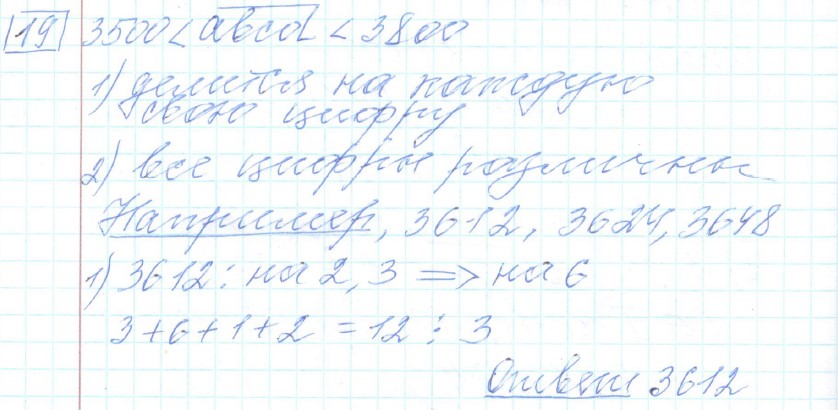 19 3500 < abcd < 3800
1) делится на каждую
свою цифру
2) все цифры различны
Например, 3612, 3624, 3648
1) 3612 ⋮ на 2, 3 => на 6
3+6+1+2 = 12 ⋮ 3
Ответ 3612